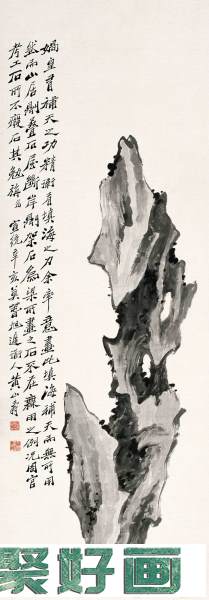 媧皇有補天之功精衛有填海之力余率意畫此填海補天兩無可用
然而山居則疊石屋斷岸則架石梁所畫之石不在棄用之例況周官
考工石所不廢石其勉旃 宣統辛亥莫春旭遲道人黃山壽
聚好画